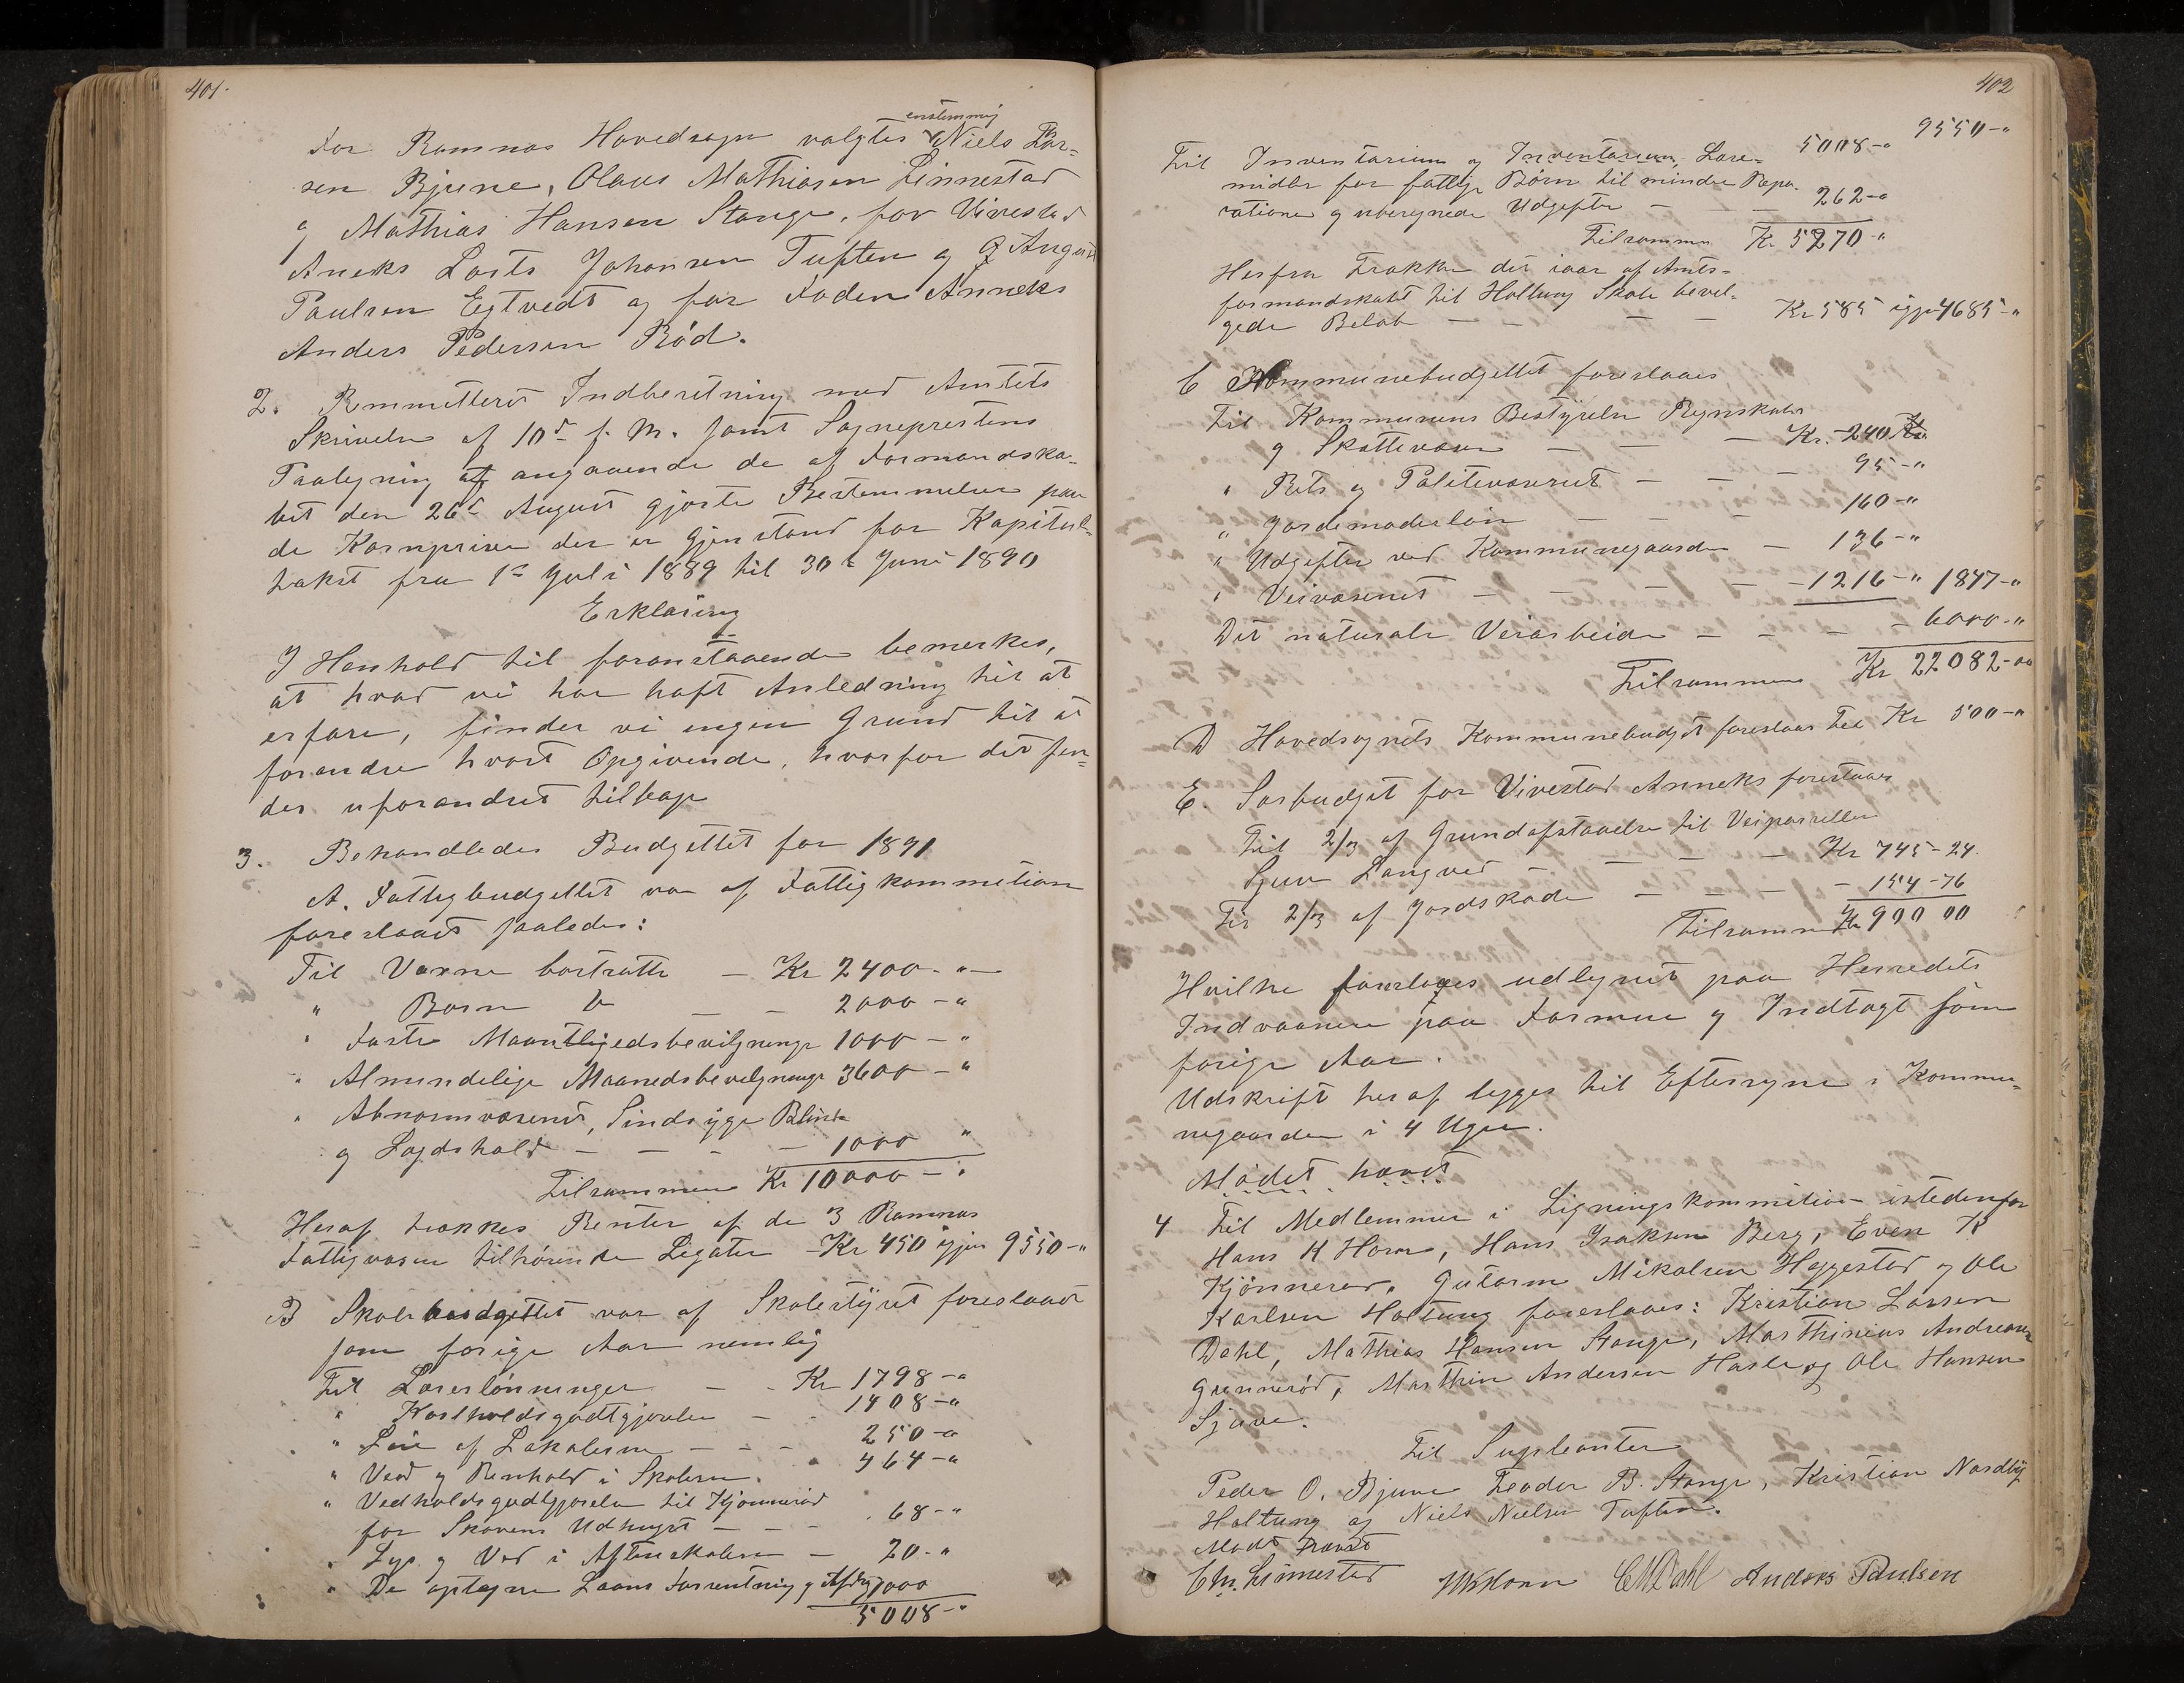 401.
For Ramnæs Hovedsogn valgtes enstemmig Niels Lar=
sen Bjune, Olaus Mathiasen Linnestad
og Mathias Hansen Stange, for Vivestad
Aneks Lars Johansen Tuften og August
Paulsen Egtvedt og for Foden Anneks
Anders Pedersen Röd.
2. Remitteret Indberetning med Amtets
Skrivelse af 10de f. M. samt Sogneprestens
Paategning angaaende de af Formandska-
bet den 26de August gjorte Bestemmelser paa
de Kornpriser der er Gjenstand for Kapitul-
takst fra 1ste Juli 1889 til 30te Juni 1890
Erklæring
I Henhold til foranstaaende bemerkes,
at hvad vi har haft Anledning til at
erfare, finder vi ingen Grund til at
forandre hvert Opgivende, hvorfor det sen=
des uforandret tilbage
3. Behandledes Budgettet for 1891
A. Fattigbudgettet var af Fattigkommetionen
foreslaaet saaledes:
Til Voxne bortsatte — Kr 2400-"-
" Børn D — — 2000-"
" Faste Maanedsbevilgninger 1000-"
" Almindelige Maanedsbevilgninger 3600-"
" Abnormvæsenet, Sindsyge Blinde
og Lægdshold — — — 1000 "
Tilsammen Kr 10000-"
Heraf trækkes Renter af de 3 Ramnæs
Fattigvæsen tilhørende Legater — Kr 450 igjen 9550-"
B Skolebudgettet var af Skolestyret foreslaaet
som forige Aar nemlig
Til Lærerlönninger — - Kr 1798-"
" Kostholdsgodtgjørelse — - 1408-"
" Leie af Lokalerne — — - 250-"
" Ved og Renhold i Skolerne. 464-"
" Vedholdsgodtgjørelse til Kjønnerød
for Skovens Udhugst — — - 68-"
" Lys og Ved i Aftenskolerne — 20-"
" De optagne Laans Forrentning og Afdrag 1000
5008-"
402
9550-"
5008-"
Til Inventarium og Inventarium, Lære=
midler for fattige Børn til mindre Repa-
rationer og uberegnede Udgifter — — 262-"
Tilsammen Kr 5270-"
Herfra Trækkes det iaar af Amts=
formandskabet til Holtung Skole bevil=
gede Beløb — — — — Kr 585 igjen 4685-"
C Kommunebudgettet foreslaaes
Til Kommunens Bestyrelse Regnskabs
og Skattevæsen — — — Kr. 240
" Rets og Politivæsenet — — — 95-"
" Jordemoderlön — — — 160-"
" Udgifter ved Kommunegaarden — 136-"
" Veivæsenet — — — — 1216-" 1847-"
Det naturale Veiarbeide — — — — 6000-"
Tilsammen Kr 22082-00
D Hovedsognets Kommunebudget foreslaaes til Kr 500-"
E. Særbudget for Vivestad Anneks foreslaaes
Til 2/3 af Grundafstaaelse til Veiparsellen
Sjuve Langved — — — — Kr 745-24
Til 2/3 af Jordskade — — — — 154-76
Tilsammen Kr 900 00
Hvilke foreslaaes udlignet paa Herredets
Indvaanere paa Formue og Indtægt som
forige Aar.
Udskrift heraf lægges til Eftersyn i Kommu=
negaarden i 4 Uger.
Mödet hævet
4 Til Medlemmer i Ligningskommition istedenfor
Hans K Horn, Hans Isaksen Berg, Even K
Kjönnerød, Gutorm Mikalsen Heggestad og Ole
Karlsen Holtung foreslaaes: Kristian Larsen
Dahl, Mathias Hansen Stange, Marthinius Andreas
Grennerød, Marthin Andersen Hasle og Ole Hansen
Sjuve.
Til Supleanter
Peder O. Bjune Teodor B. Stange, Kristian Nordby
Holtung og Niels Nielsen Tuften.
Mödet hævet
Chr. Linnestad HKHorn CMDahl Anders Paulsen